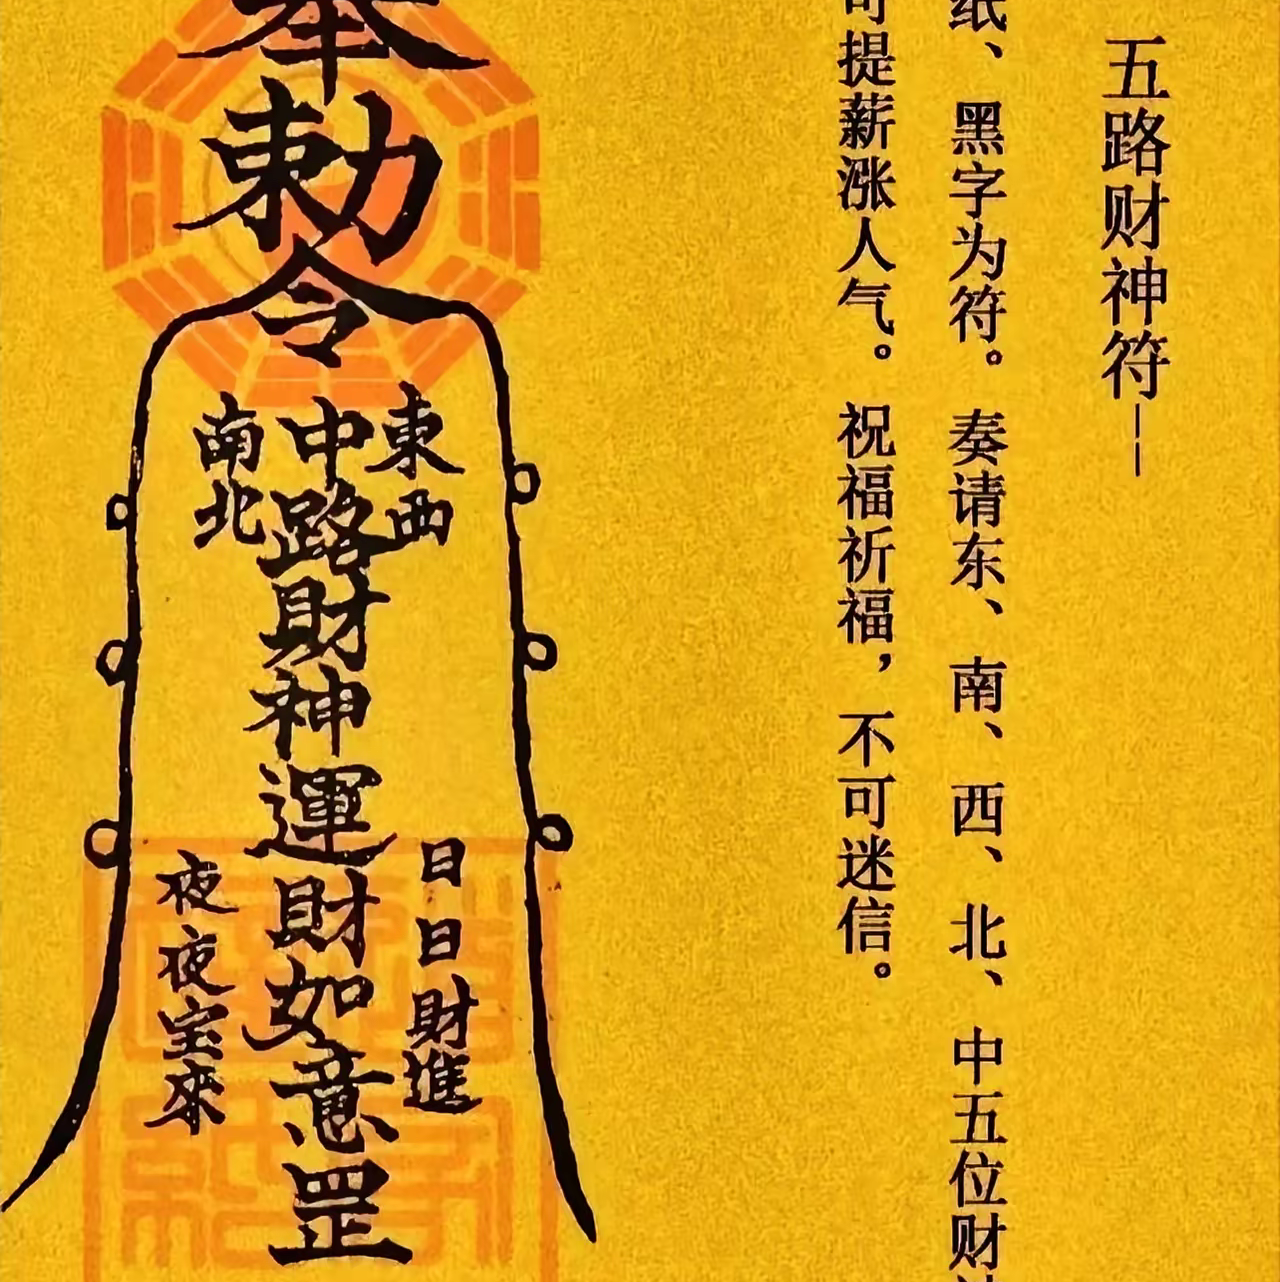 五路财神符——
纸、黑字为符。奏请东、南、西、北、中五位财
可提薪涨人气。祝福祈福，不可迷信。
奉
勅
令
東西
中路財神運財如意罡
南北
日日財進
夜夜宝來